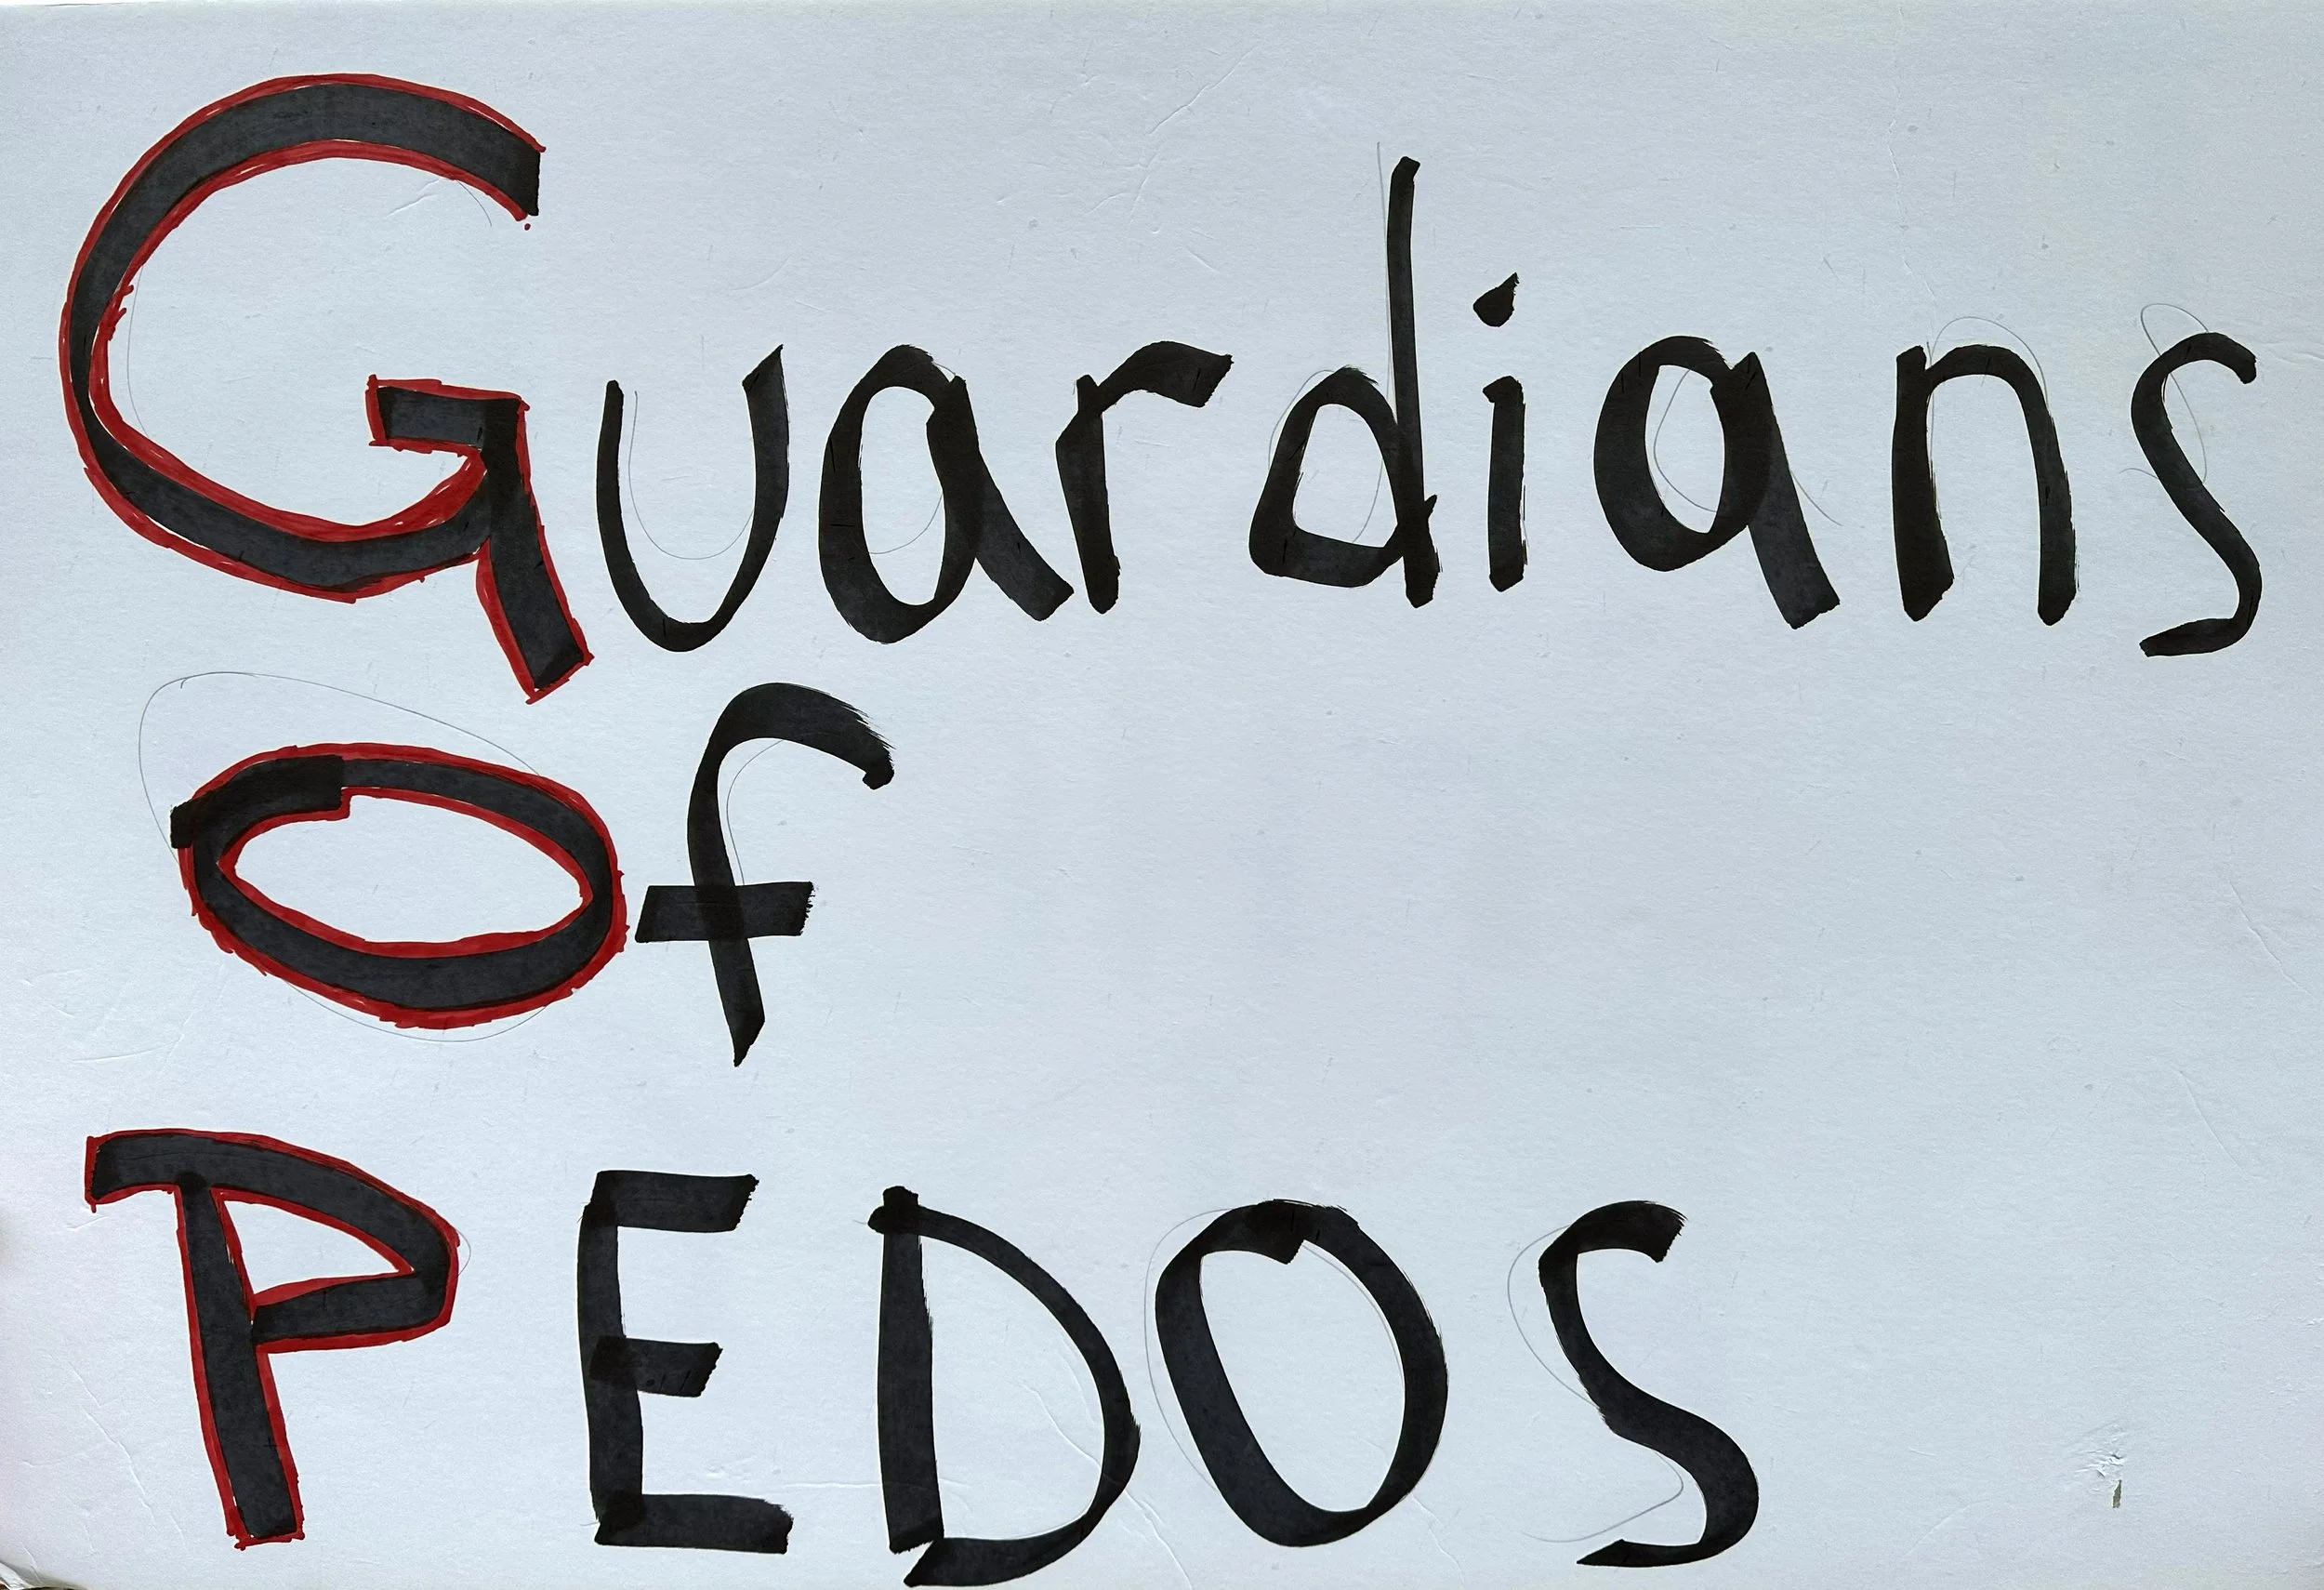 Guardians
Of
PEDOS